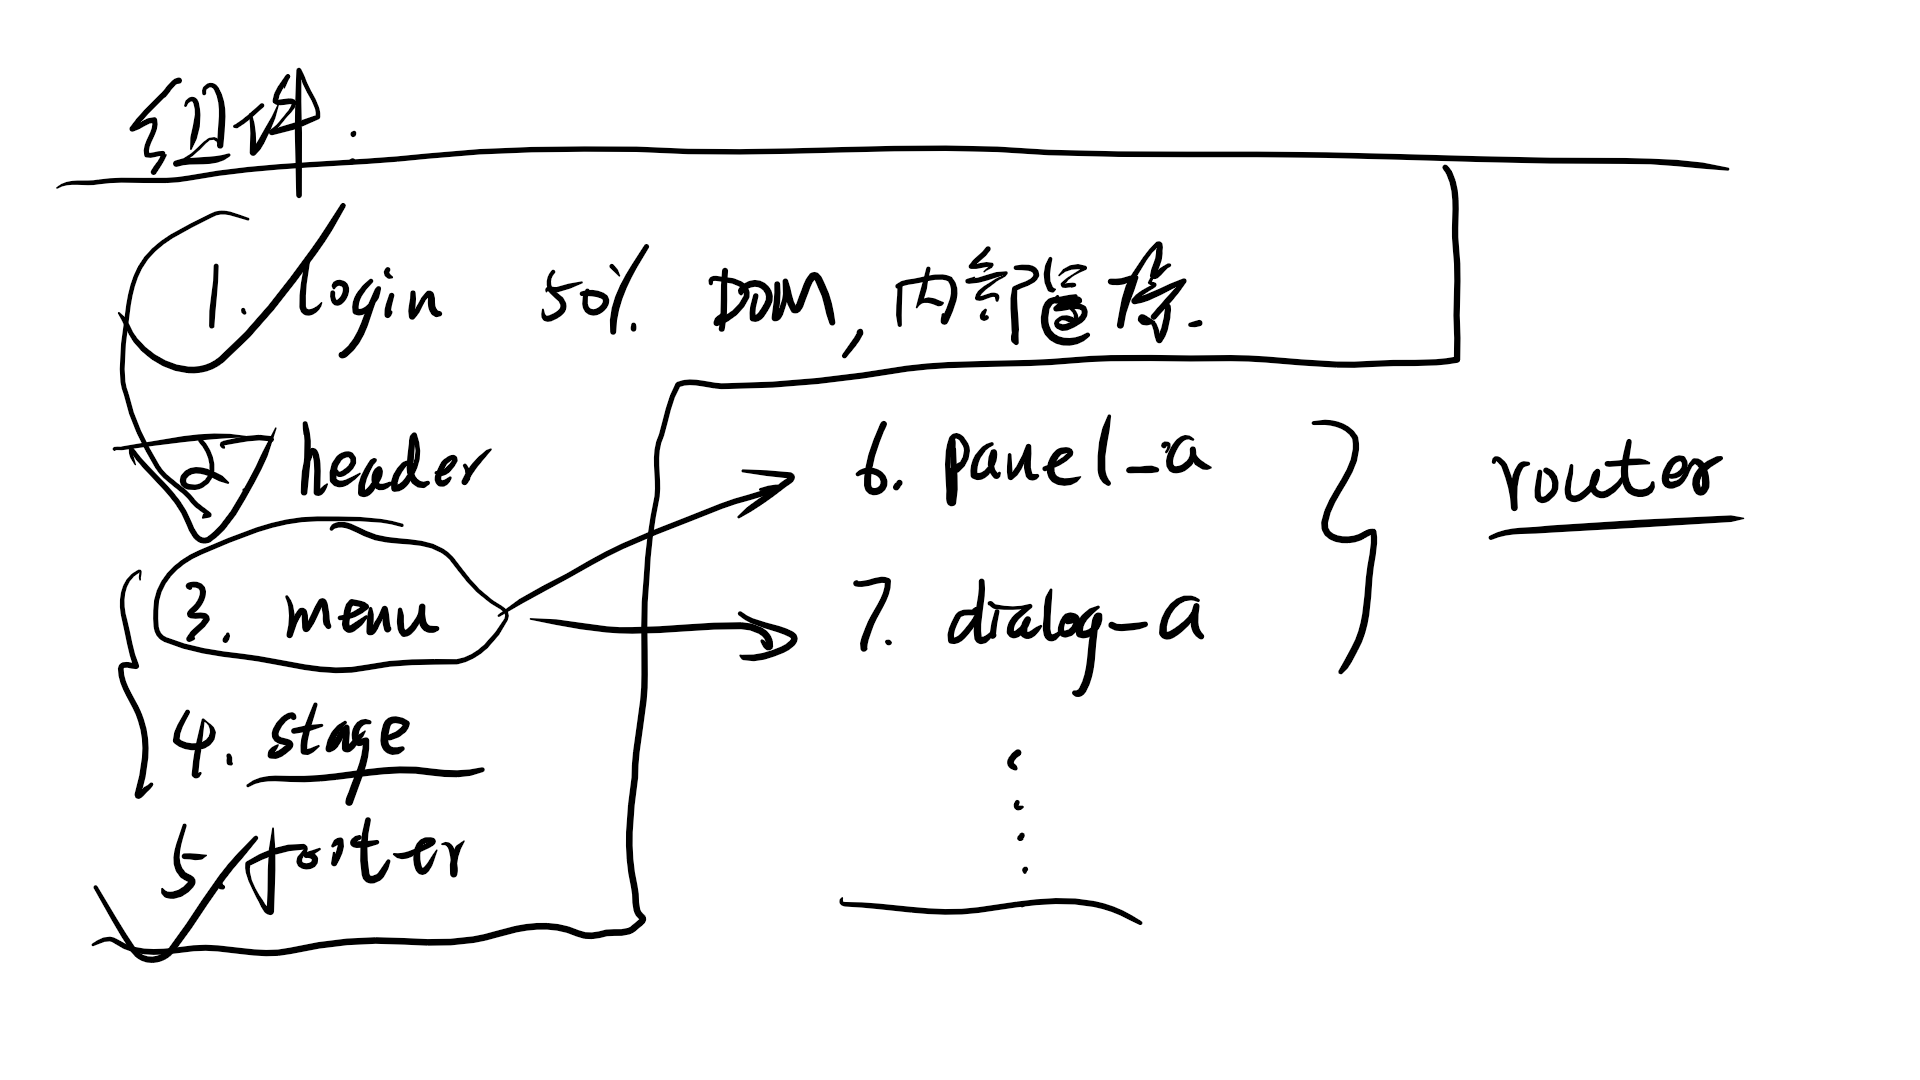 组件:
1. login 50% DOM, 内部
2 header
3. menu
4. stage
5. footer
6. panel_a
7. dialog_a
router